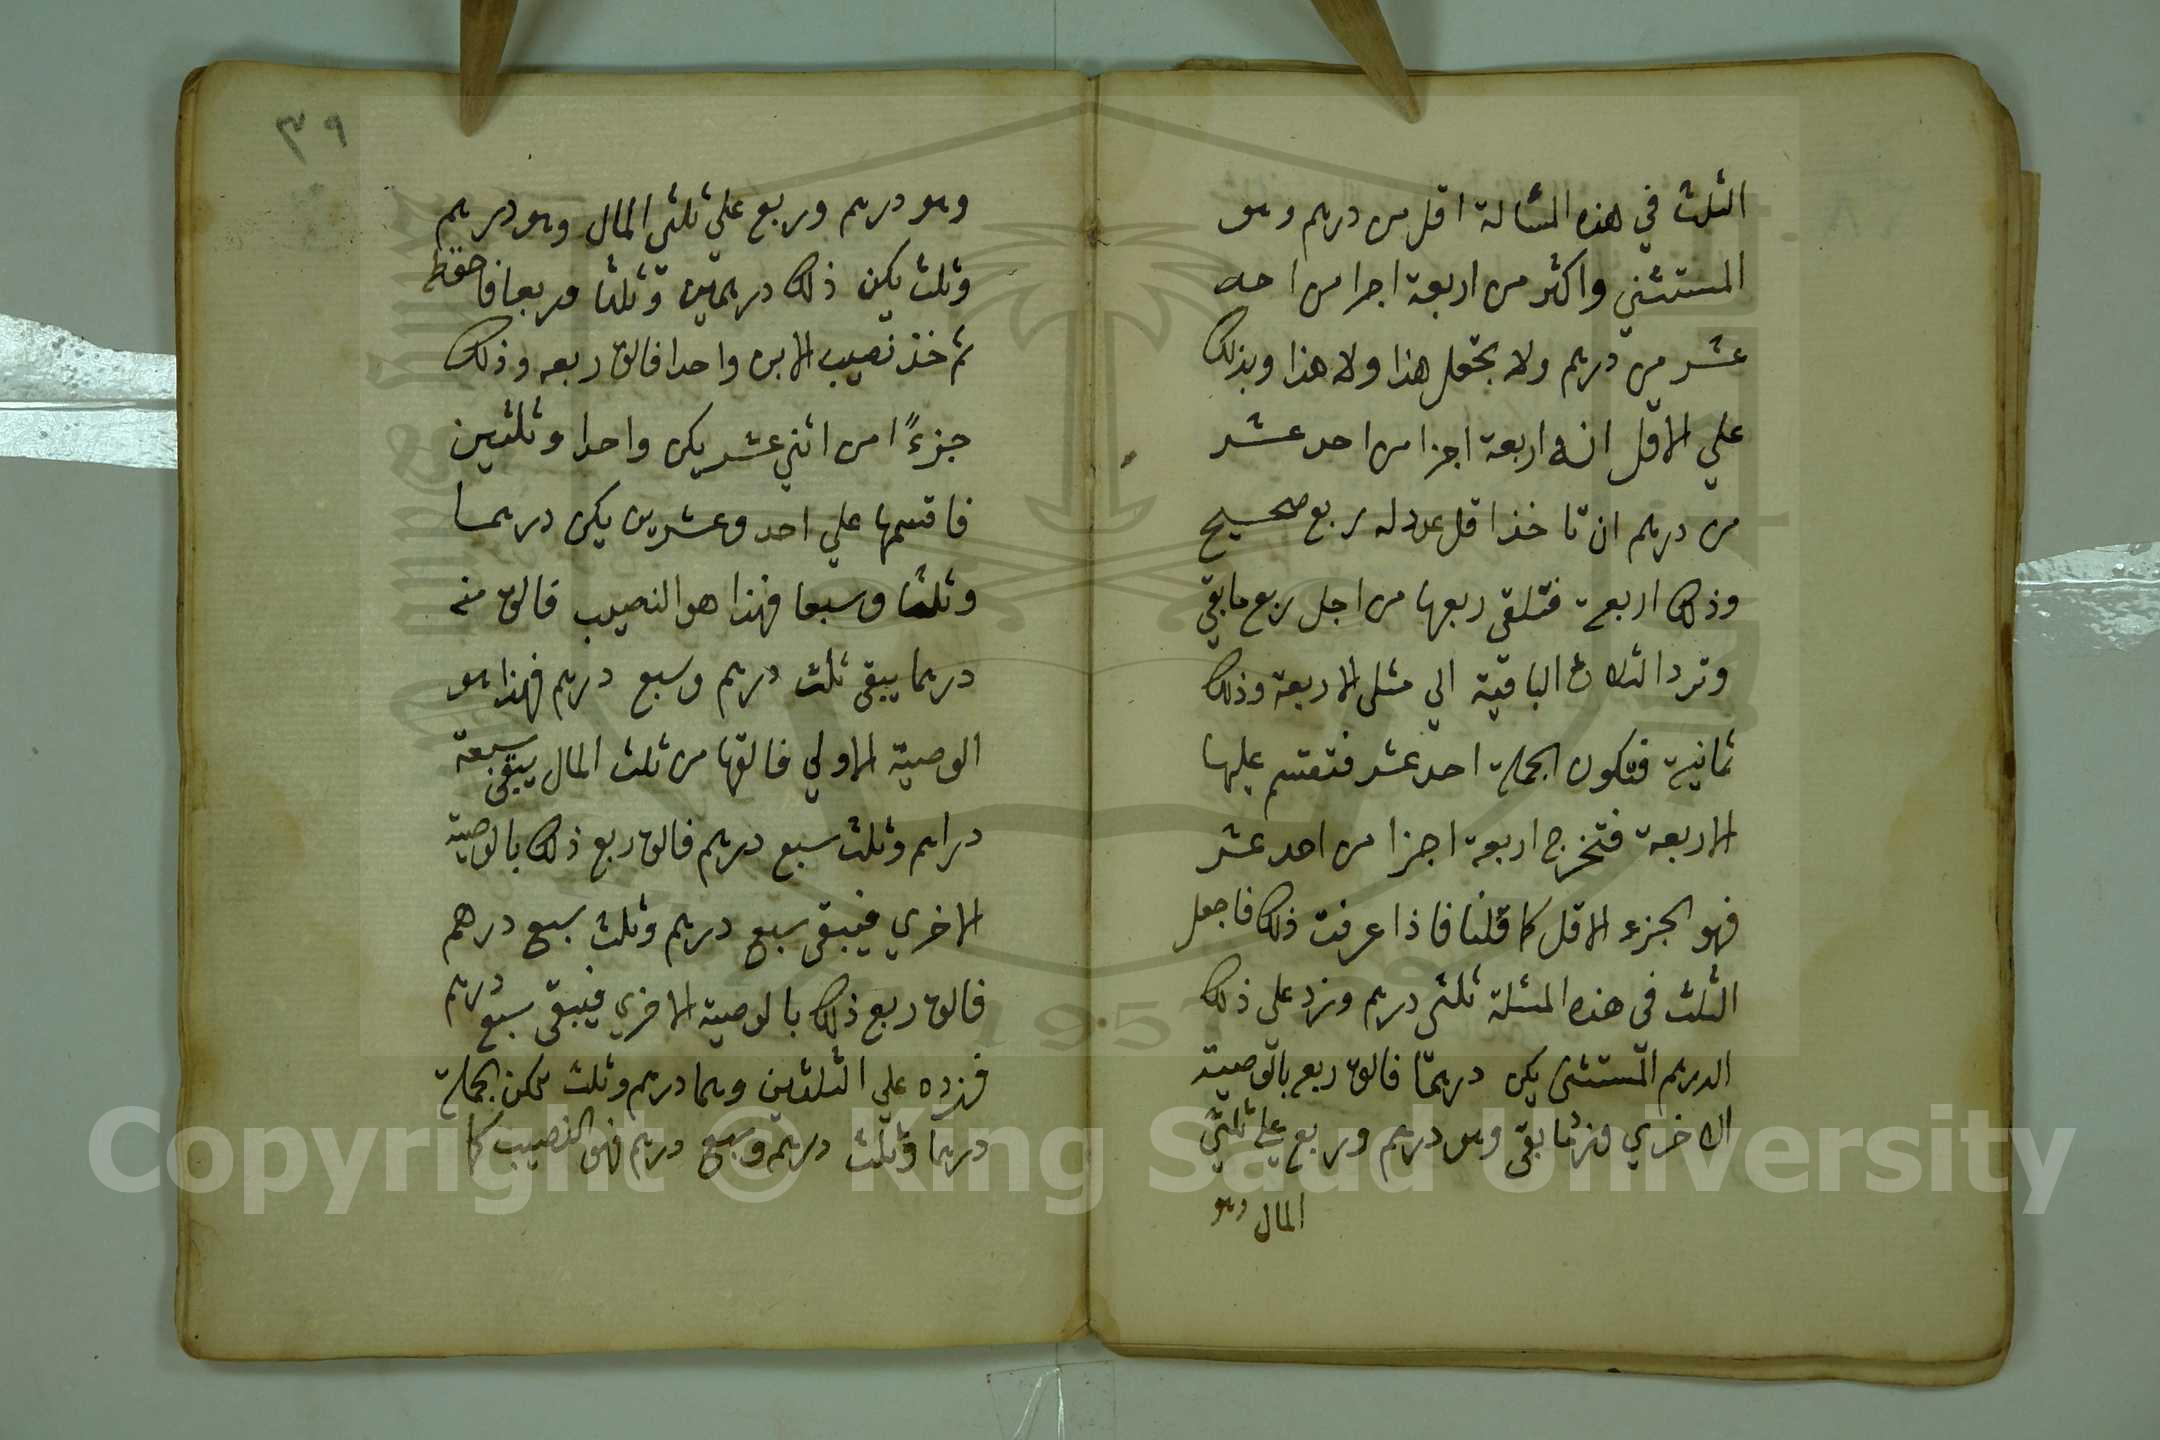 الثلث في هذه المسالة اقل من درهم وهو
المستثني واكثر من اربعة اجزا من احد
عشر من درهم ولا يحتمل هذا ولا هذا وبذلك
علي الاقل انه اربعة اجزا من احد عشر
من درهم ان تاخذ اقل عدد له ربع صحيح
وذلك اربعة فتلقي ربعها من اجل ربع مابقي
وترد الثلاث الباقية الي مثلي الاربعة وذلك
ثمانية فتكون الجملة احد عشر فتقسم عليها
الاربعة فتخرج اربعة اجزا من احد عشر
فهو الجزء الاقل كما قلنا فاذا عرفت ذلك فاجعل
الثلث في هذه المسئلة ثلثي درهم وزد علي ذلك
الدرهم المستثني يكن درهما فالق ربع بالوصية
الاخري وزد مابقي وهو درهم وربع علي ثلثي
المال وهو
٣٩
وهو درهم وربع علي ثلثي المال وهو درهم
وثلث يكن ذلك درهمين وثلثا وربعا فاحفظ
ثم خذ نصيب الابن واحدا فالق ربعه وذلك
جزءًا من اثني عشر يكن واحدا وثلثين
فاقسمها علي احد وعشرين يكن درهما
وثلثا وسبعا فهذا هو النصيب فالق منه
درهما يبقي ثلث درهم وسبع درهم فهذا هو
الوصية الاولي فالقها من ثلث المال يبقي سبعة
دراهم وثلث سبع درهم فالق ربع ذلك بالوصية
الاخري فيبقي سبع درهم وثلث سبع درهم
فالق ربع ذلك بالوصية الاخري فيبقي سبع درهم
فزده علي الثلثين وهما درهم وثلث تكن الجملة
درهما وثلث درهم وسبع درهم فهو النصيب كما
Copyright © King Saud University
1957